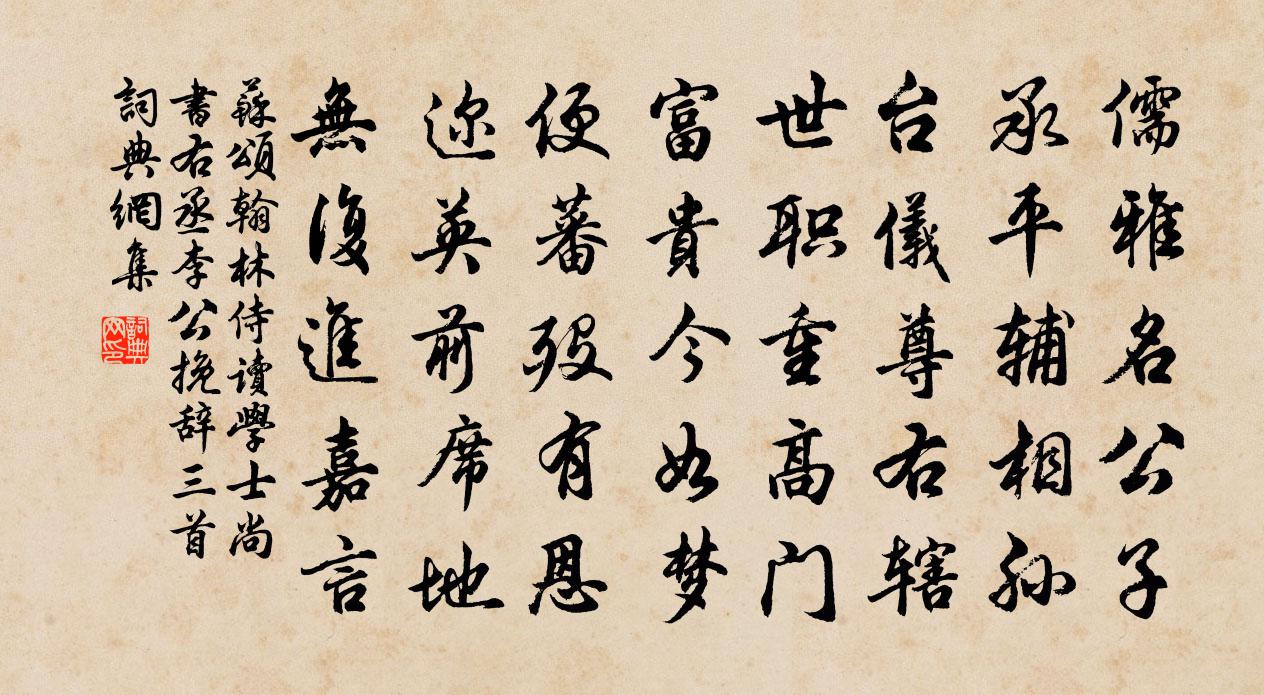 儒雅名公子
承平辅相孙
台儀尊右辖
世职重高门
富貴今如梦
便蕃殁有恩
迩英前席地
無復進嘉言
蘇頌翰林侍讀學士尚
書右丞李公挽辞三首
詞典網集
詞典网印